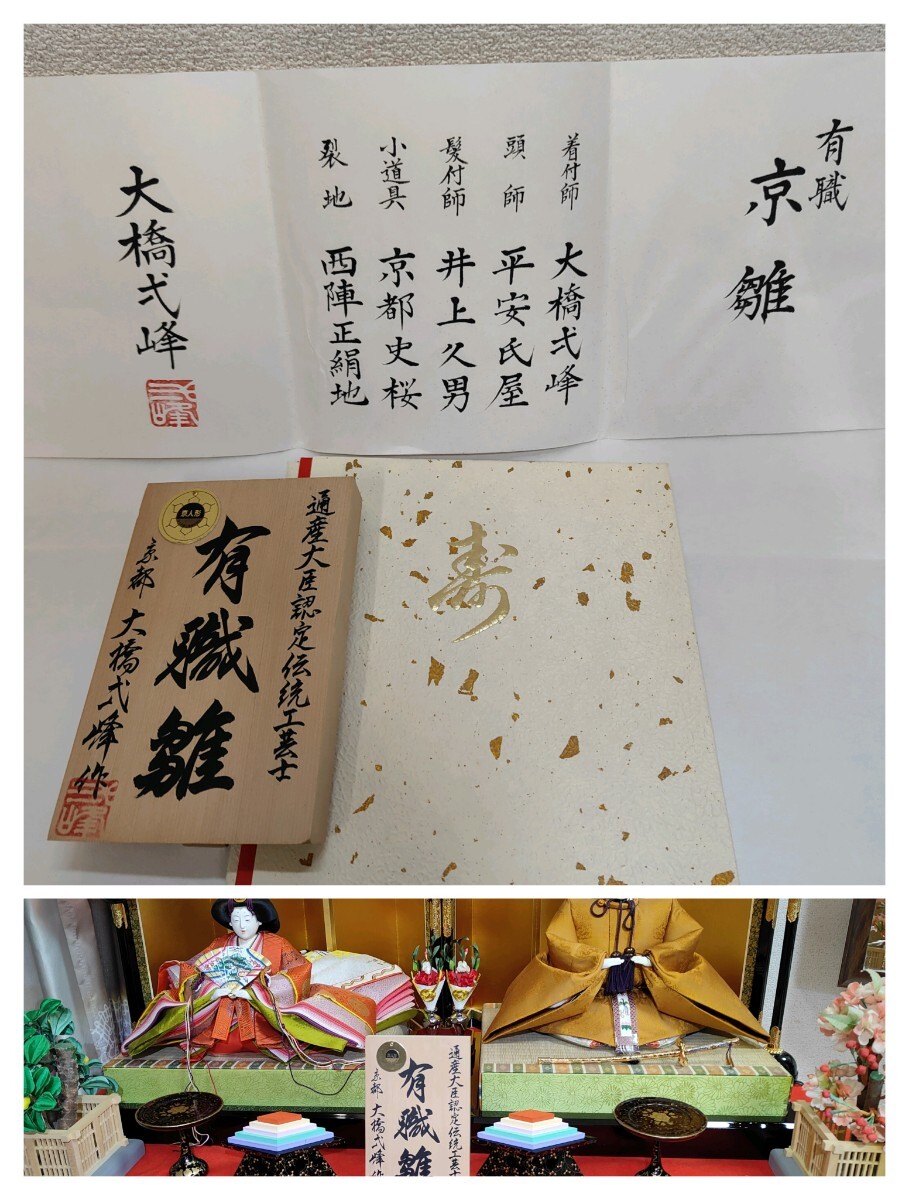 有職
京雛
着付師 大橋弌峰
頭師 平安氏屋
髪付師 井上久男
小道具 京都史桜
裂地 西陣正絹地
大橋弌峰
弌峰
寿
通産大臣認定伝統工芸士
有職雛
京都 大橋弌峰作
京人形
弌峰
通産大臣認定伝統工芸士
有職雛
京都 大橋弌峰作